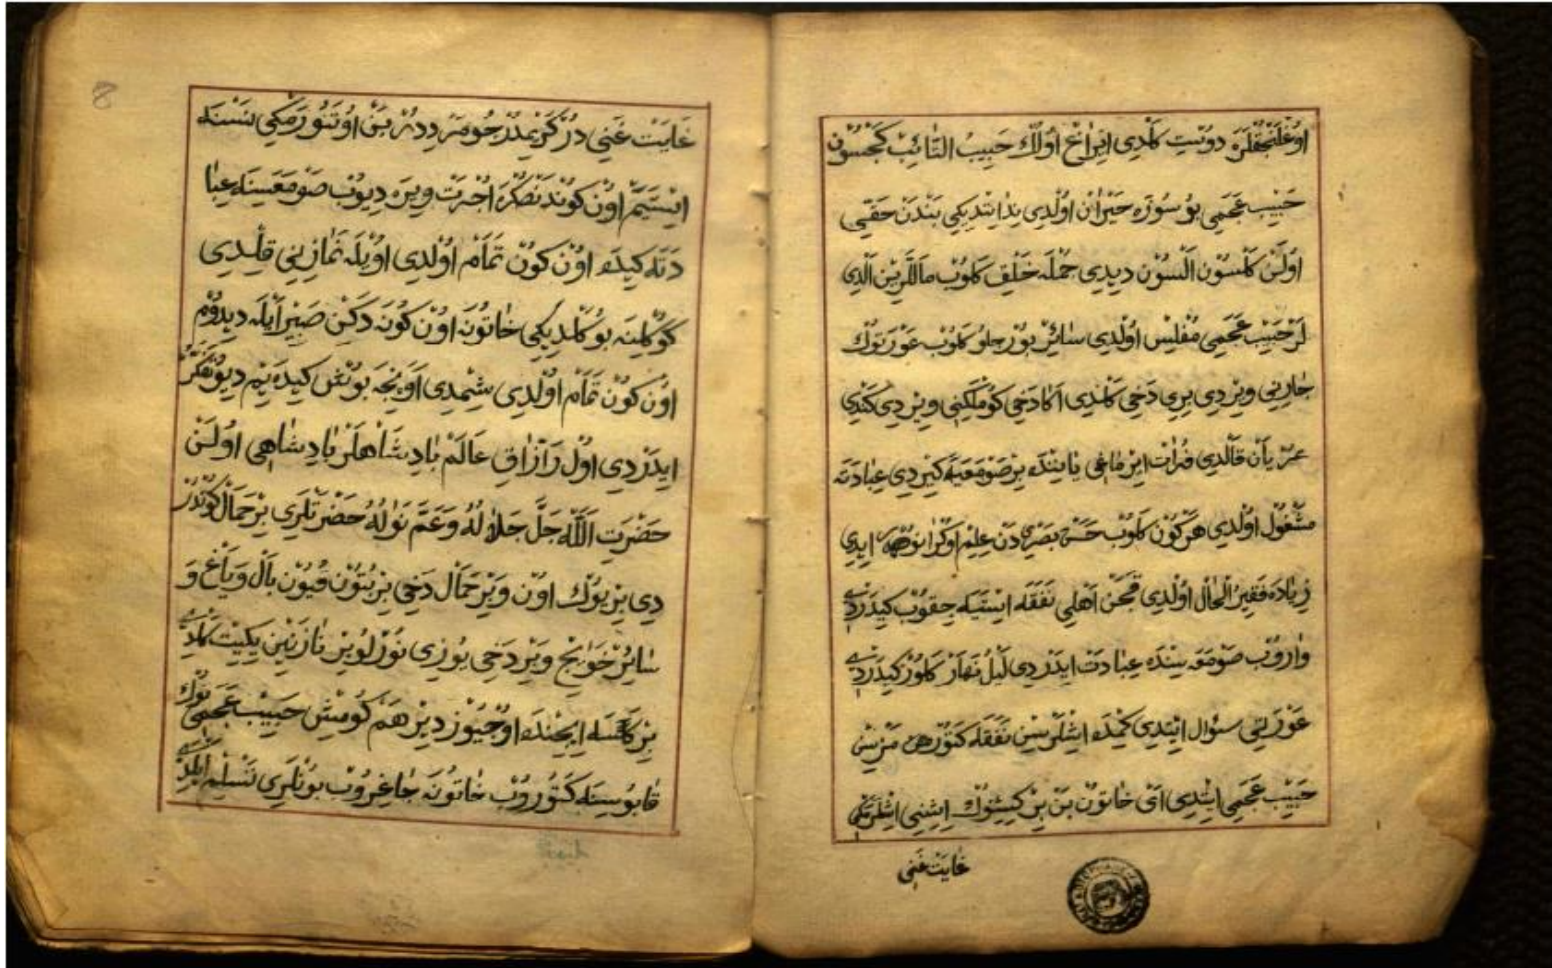 اوغلنجقلره دوست كلدی ایراخ اولك حبیب التائب كچسون
حبیب عجمی بو سوزه حیران اولدی ندا ایتدیكی بندن حقی
اولن كلسون السون دیدی جمله خلق كلوب ماللرین الدی
لر حبیب عجمی مفلس اولدی سائر بورجلو كلوب عورتوك
جارینی ویردی بری دخی كلدی اكا دخی كوملكنی ویردی كندی
عریان قالدی فرات ایرماغی یاننده بر صومعیه كیردی عبادته
مشغول اولدی هركون كلوب حسن بصریدن علم اوكرانور ایدی
زیاده فقیر الحال اولدی قچن اهلی نفقه ایستیه چقوب كیدردی
واروب صومعه سنده عبادت ایدردی لیل نهار كلور كیدردی
عورتی سؤال ایتدی كیمده اشلرسن نفقه كتورمزسن
حبیب عجمی ایتدی ای خاتون بن بر كیشنوك ایشنی اشلرمكی
غایت غنی
8
غایت غنی در كریمدر جومرددر بن اوتنورمكی نسنه
ایستیم اون كوندنصكره اجرت ویره دیوب صومعسینه عبا
دته كیده اون كون تمام اولدی اویله نمازینی قلدی
كوكلینه بو كلدیكی خاتونه اون كونه دكن صبر ایله دیدوم
اون كون تمام اولدی شیمدی اوه نیجه بوش كیده یم دیو فكر
ایدردی اول رازاق عالم پادشاهلر پادشاهی اولن
حضرت الله جل جلاله وعم نواله حضرتلری بر حمال كوندر
دی بر یوك اون وبر حمال دخی بر بتون قیون بال ویاغ و
سائر حوایج وبر دخی یوزی نورلو بر نازنین یكیت كلدی
بر كاسه ایچنده اوچیوز درهم كومش حبیب عجمینوك
قاپوسینه كتوروب خاتونه چاغروب بونلری تسلیم ایلدی